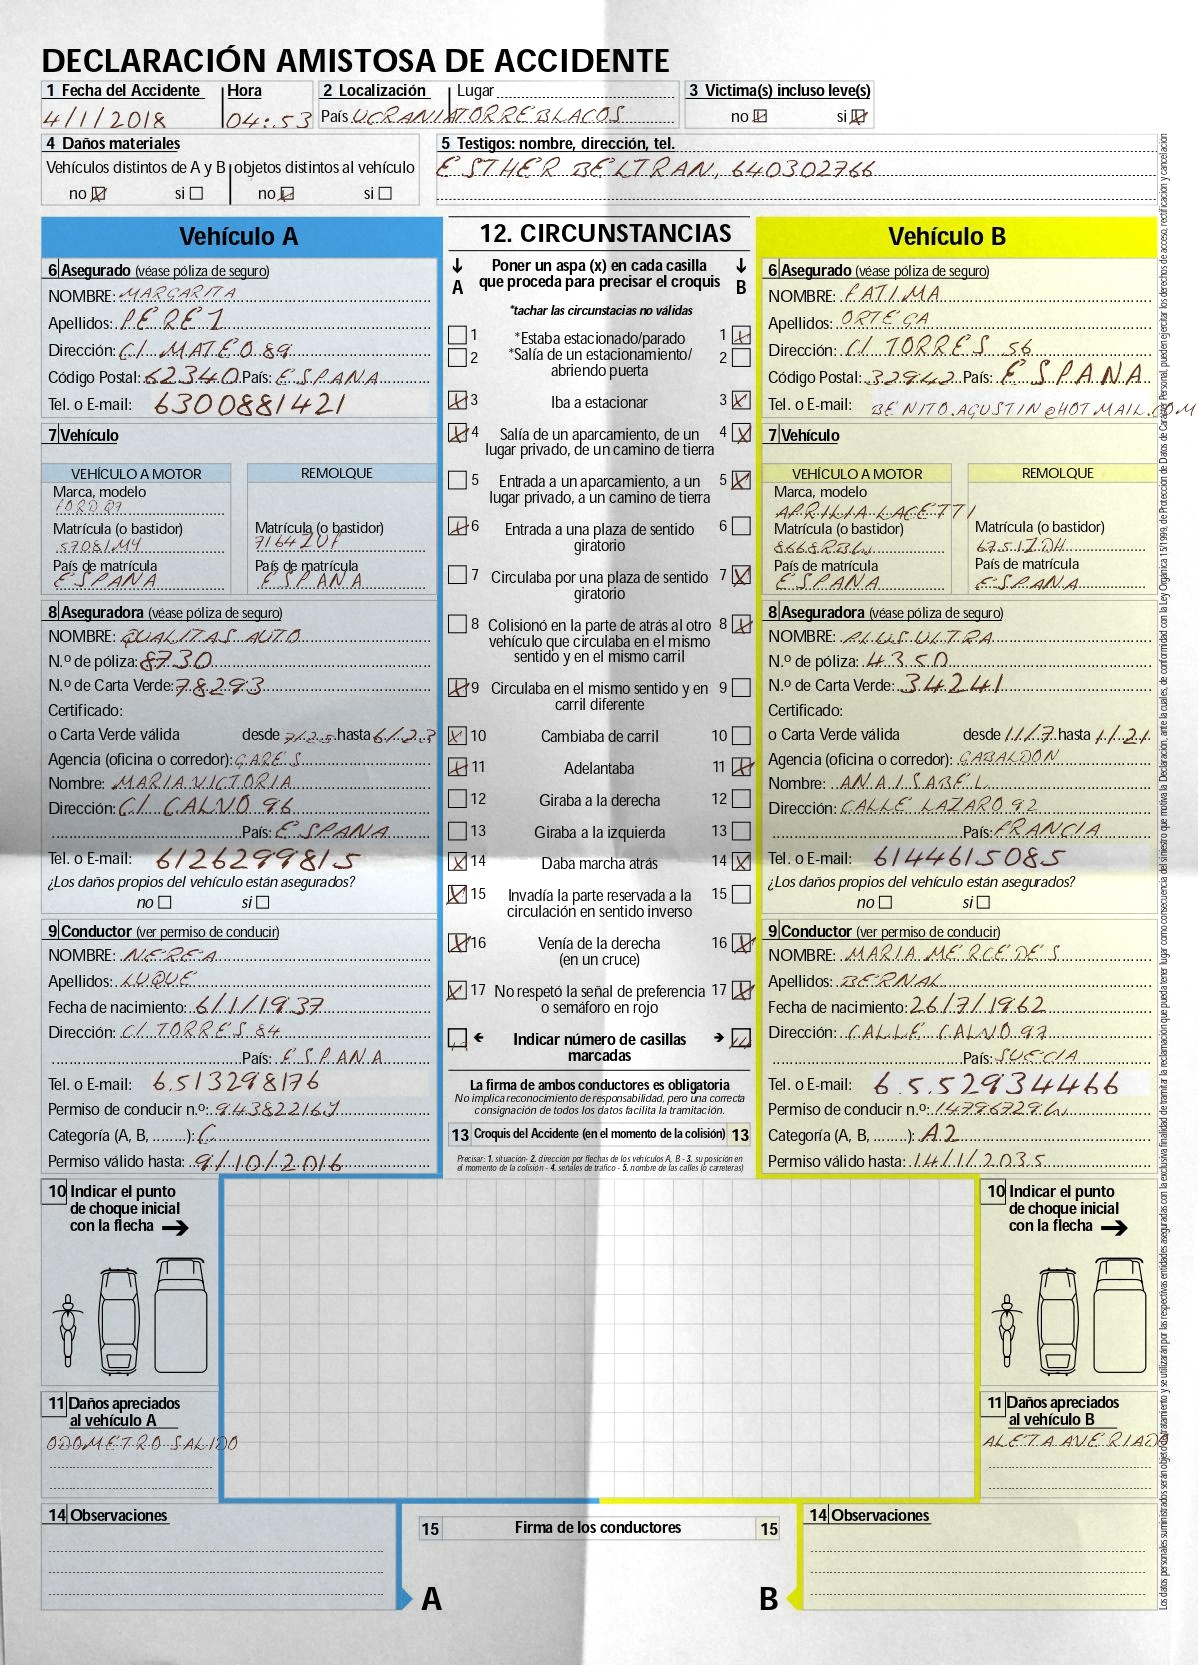 DECLARACIÓN AMISTOSA DE ACCIDENTE
1 Fecha del Accidente Hora 2 Localización Lugar 3 Victima(s) incluso leve(s)
4/1/2018 04:53 País UCRANIA TORREBLACOS no si
4 Daños materiales
5 Testigos: nombre, dirección, tel.
Vehículos distintos de A y B objetos distintos al vehículo
ESTHER BELTRAN, 640302766
no si no si
Vehículo A
6 Asegurado (véase póliza de seguro)
NOMBRE: MARGARITA
Apellidos: PEREZ
Dirección: C/ MATEO 89
Código Postal: 62340 País: ESPANA
Tel. o E-mail: 6300881421
7 Vehículo
VEHÍCULO A MOTOR REMOLQUE
Marca, modelo
FORD Q7
Matrícula (o bastidor) Matrícula (o bastidor)
5708IMY 7164ZUF
País de matrícula País de matrícula
ESPANA ESPANA
8 Aseguradora (véase póliza de seguro)
NOMBRE: QUALITAS AUTO
N.º de póliza: 8730
N.º de Carta Verde: 78293
Certificado:
o Carta Verde válida desde 7/25 hasta 6/23
Agencia (oficina o corredor): GARES
Nombre: MARIA VICTORIA
Dirección: C/ CALVO 96
País: ESPANA
Tel. o E-mail: 6126299815
¿Los daños propios del vehículo están asegurados?
no si
9 Conductor (ver permiso de conducir)
NOMBRE: NEREA
Apellidos: LUQUE
Fecha de nacimiento: 6/1/1937
Dirección: C/ TORRES 84
País: ESPANA
Tel. o E-mail: 6.513298176
Permiso de conducir n.º: 94382216J
Categoría (A, B, ........): C
Permiso válido hasta: 9/10/2016
10 Indicar el punto
de choque inicial
con la flecha
11 Daños apreciados
al vehículo A
ODOMETRO SALIDO
14 Observaciones
12. CIRCUNSTANCIAS
A Poner un aspa (x) en cada casilla
que proceda para precisar el croquis B
*tachar las circunstacias no válidas
1 *Estaba estacionado/parado 1
2 *Salía de un estacionamiento/ 2
abriendo puerta
3 Iba a estacionar 3
4 Salía de un aparcamiento, de un 4
lugar privado, de un camino de tierra
5 Entrada a un aparcamiento, a un 5
lugar privado, a un camino de tierra
6 Entrada a una plaza de sentido 6
giratorio
7 Circulaba por una plaza de sentido 7
giratorio
8 Colisionó en la parte de atrás al otro 8
vehículo que circulaba en el mismo
sentido y en el mismo carril
9 Circulaba en el mismo sentido y en 9
carril diferente
10 Cambiaba de carril 10
11 Adelantaba 11
12 Giraba a la derecha 12
13 Giraba a la izquierda 13
14 Daba marcha atrás 14
15 Invadía la parte reservada a la 15
circulación en sentido inverso
16 Venía de la derecha 16
(en un cruce)
17 No respetó la señal de preferencia 17
o semáforo en rojo
Indicar número de casillas
marcadas
La firma de ambos conductores es obligatoria
No implica reconocimiento de responsabilidad, pero una correcta
consignación de todos los datos facilita la tramitación.
13 Croquis del Accidente (en el momento de la colisión) 13
Precisar: 1. situación- 2. dirección por flechas de los vehículos A, B - 3. su posición en
el momento de la colisión - 4. señales de tráfico - 5. nombre de las calles (o carreteras)
15 Firma de los conductores 15
A B
Vehículo B
6 Asegurado (véase póliza de seguro)
NOMBRE: FATIMA
Apellidos: ORTEGA
Dirección: C/ TORRES 56
Código Postal: 32942 País: ESPANA
Tel. o E-mail: BENITO.AGUSTIN@HOTMAIL.COM
7 Vehículo
VEHÍCULO A MOTOR REMOLQUE
Marca, modelo
APRILIA LACETTI
Matrícula (o bastidor) Matrícula (o bastidor)
8668RBW 6751ZDH
País de matrícula País de matrícula
ESPANA ESPANA
8 Aseguradora (véase póliza de seguro)
NOMBRE: PLUS ULTRA
N.º de póliza: 4350
N.º de Carta Verde: 34241
Certificado:
o Carta Verde válida desde 11/7 hasta 1/21
Agencia (oficina o corredor): GABALDON
Nombre: ANA ISABEL
Dirección: CALLE LAZARO 92
País: FRANCIA
Tel. o E-mail: 6144615085
¿Los daños propios del vehículo están asegurados?
no si
9 Conductor (ver permiso de conducir)
NOMBRE: MARIA MERCEDES
Apellidos: BERNAL
Fecha de nacimiento: 26/7/1962
Dirección: CALLE CALVO 97
País: SUECIA
Tel. o E-mail: 6.5.52934466
Permiso de conducir n.º: 14796729W
Categoría (A, B, ........): A2
Permiso válido hasta: 14/1/2035
10 Indicar el punto
de choque inicial
con la flecha
11 Daños apreciados
al vehículo B
ALETA AVERIADA
14 Observaciones